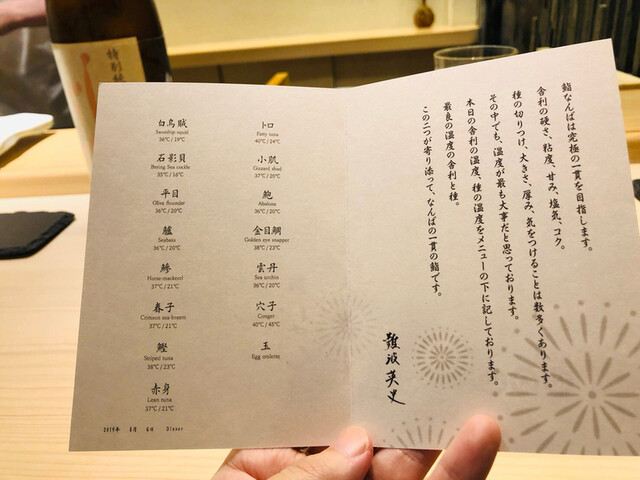 特別純
白烏賊
Swordtip squid
36℃ / 19℃
石影貝
Bering Sea cockle
35℃ / 16℃
平目
Olive flounder
36℃ / 20℃
鱸
Seabass
36℃ / 20℃
鯵
Horse-mackerel
37℃ / 21℃
春子
Crimson sea-bream
37℃ / 21℃
鰹
Striped tuna
38℃ / 23℃
赤身
Lean tuna
37℃ / 21℃
トロ
Fatty tuna
40℃ / 24℃
小肌
Gizzard shad
37℃ / 20℃
鮑
Abalone
36℃ / 20℃
金目鯛
Golden eye snapper
38℃ / 23℃
雲丹
Sea urchin
36℃ / 20℃
穴子
Conger
40℃ / 45℃
玉
Egg omlette
2019年 8月 6日 Dinner
鮨なんばは究極の一貫を目指します。
舎利の硬さ、粘度、甘み、塩気、コク。
種の切りつけ、大きさ、厚み、気をつけることは数多くあります。
その中でも、温度が最も大事だと思っております。
本日の舎利の温度、種の温度をメニューの下に記しております。
最良の温度の舎利と種。
この二つが寄り添って、なんばの一貫の鮨です。
難波英史